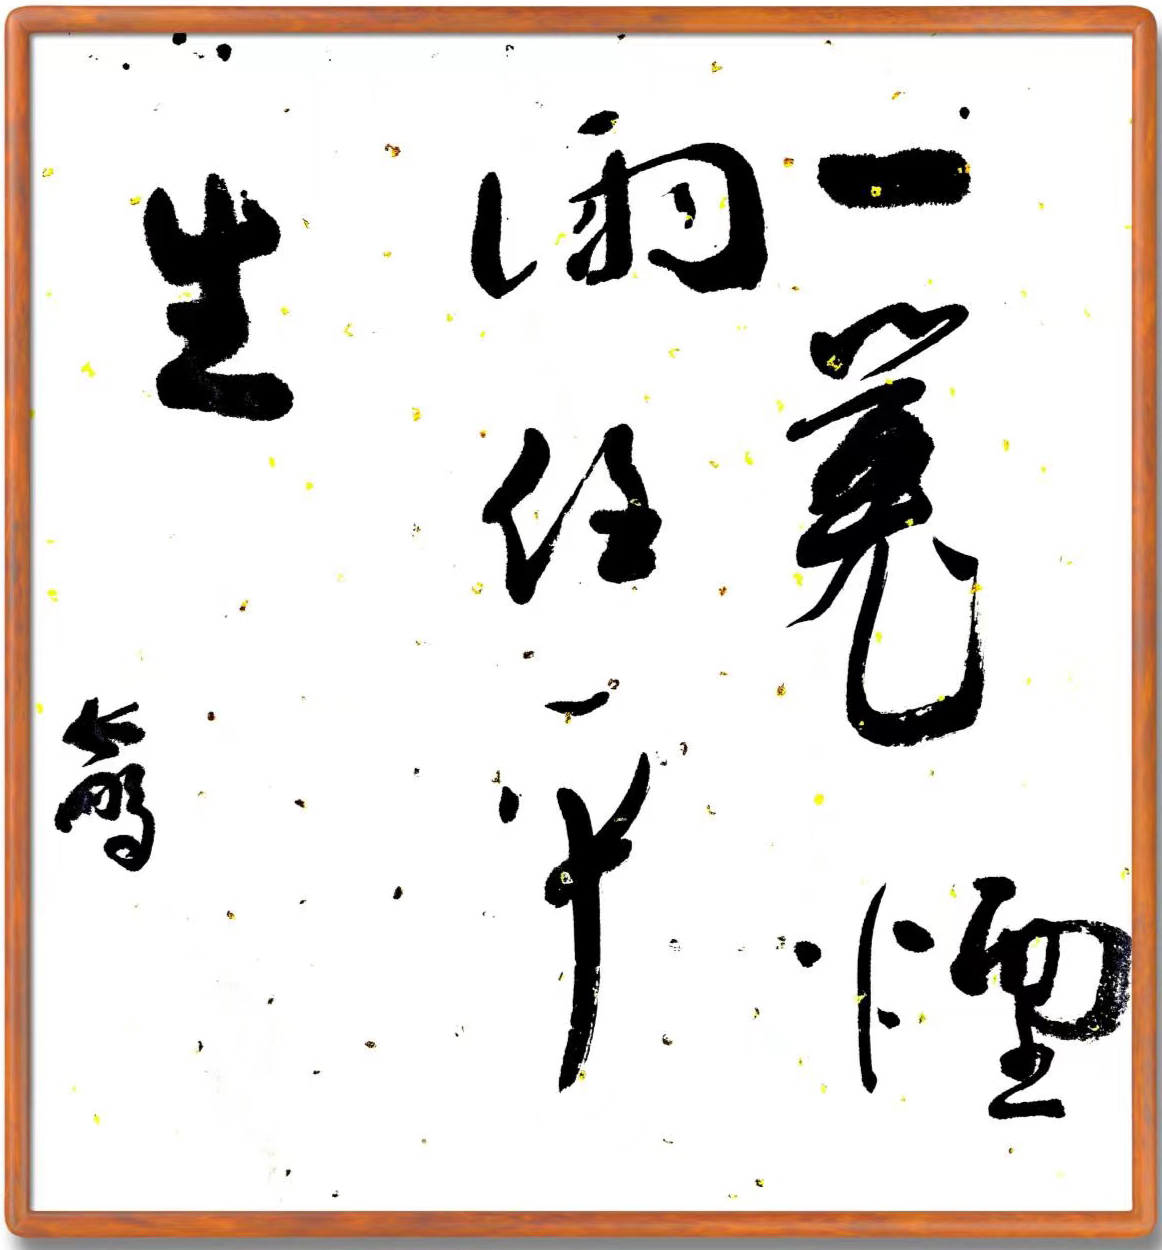 一蓑煙
雨任平
生